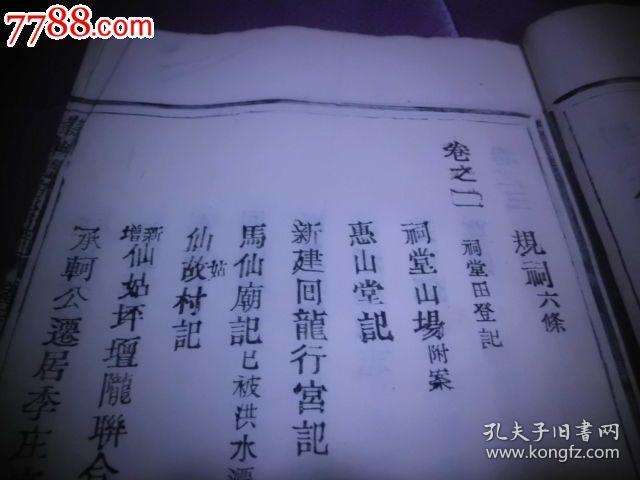 7788.com
規祠六條
卷之二 祠堂田登記
祠堂山場附案
惠山堂記
新建回龍行宮記
馬仙廟記已被洪水
仙姑故村記
新增仙姑坪壇隴聯合
承軻公遷居季庄
孔夫子旧书网
www.kongfz.com